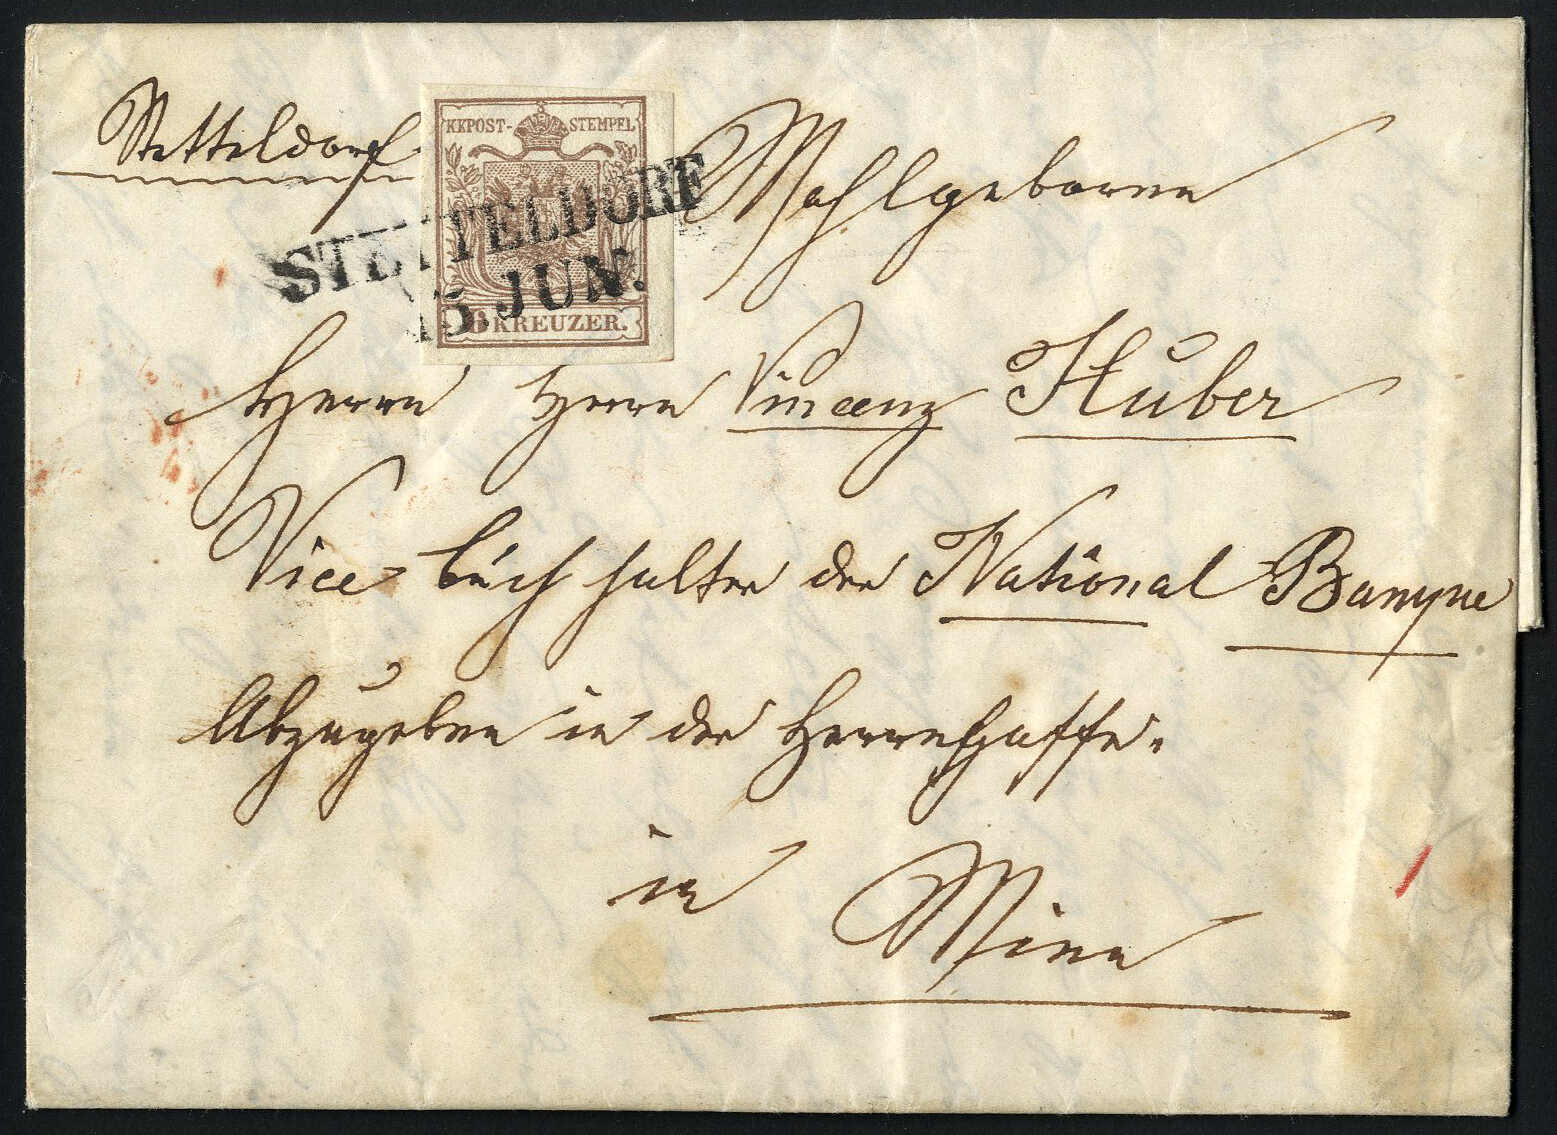 Stetteldorf
KKPOST-STEMPEL
6 KREUZER.
STETTELDORF
15. JUN.
Wohlgeboren
Herrn Herrn Vincenz Huber
Vice buchhalter der National Banque
Abzugeben in der Herrengasse.
in
Wien